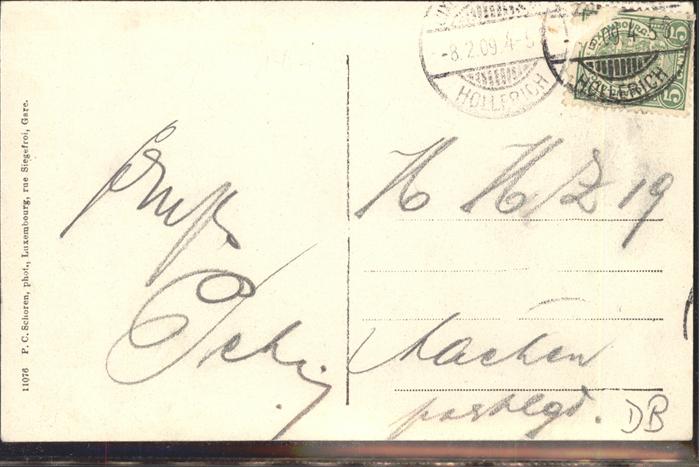 11076 P. C. Schoren, phot., Luxembourg, rue Siegefroi, Gare.
-8.2.09.4-5
HOLLERICH
LUXEMBOURG
5
HOLLERICH
Gruß
H H Z 19
Aachen
postlgd.
DB